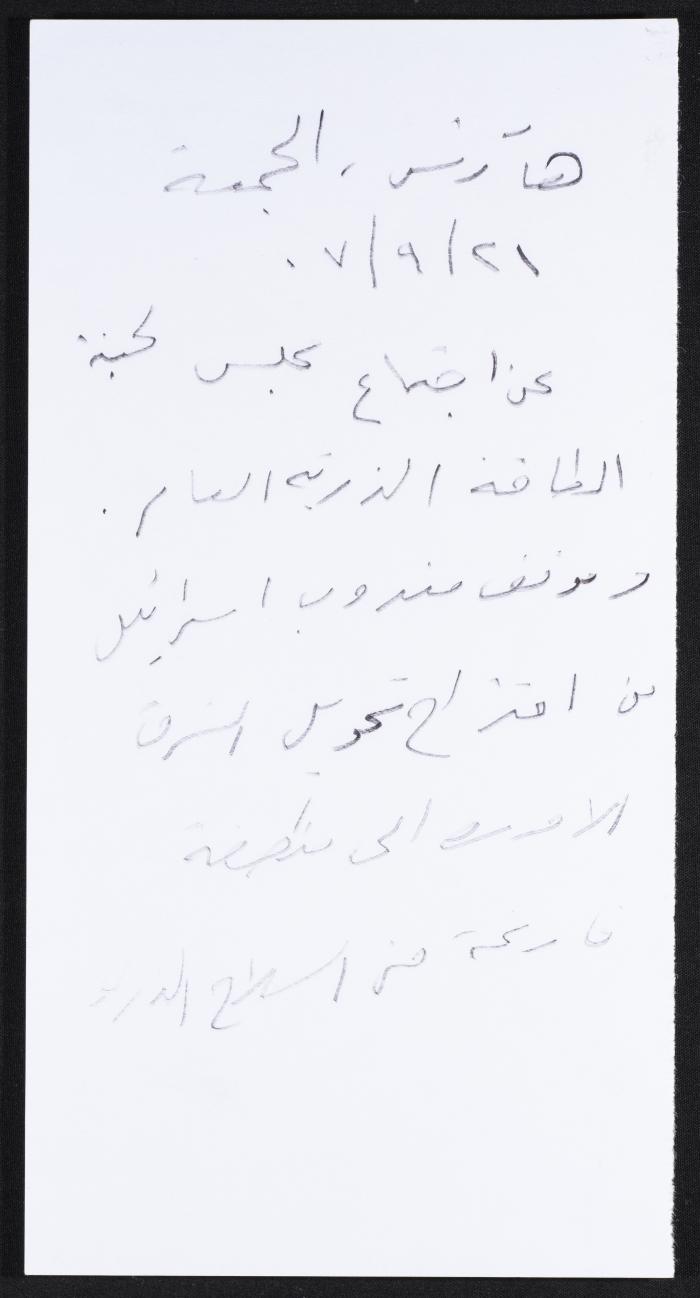 هآرتس، الجمعة
٢١/٩/٠٧
عن اجتماع مجلس لجنة
الطاقة الذرية العام.
وموقف مندوب اسرائيل
من اقتراح تحويل الشرق
الاوسط الى منطقة
فارغة من السلاح الذري